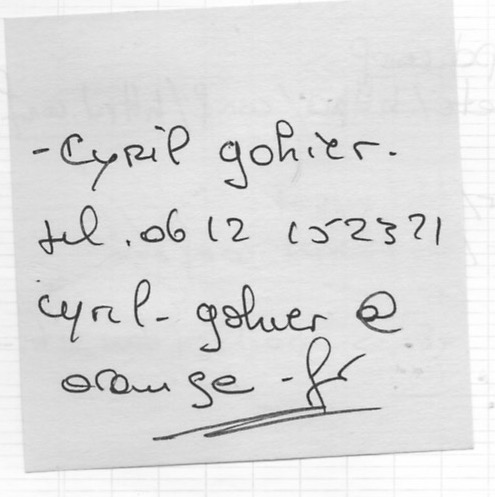 - Cyril gohier.
tel. 06 12 152321
cyril-gohier @
orange-fr